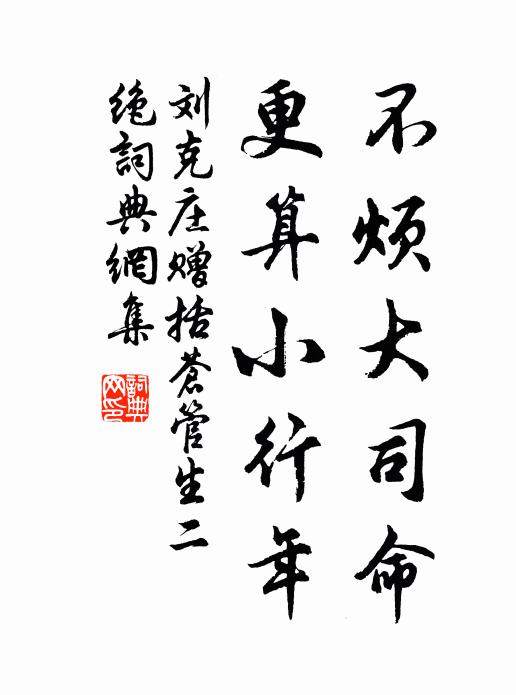 不烦大司命
更算小行年
刘克庄赠括蒼管生二
绝詞典網集
詞典
网印